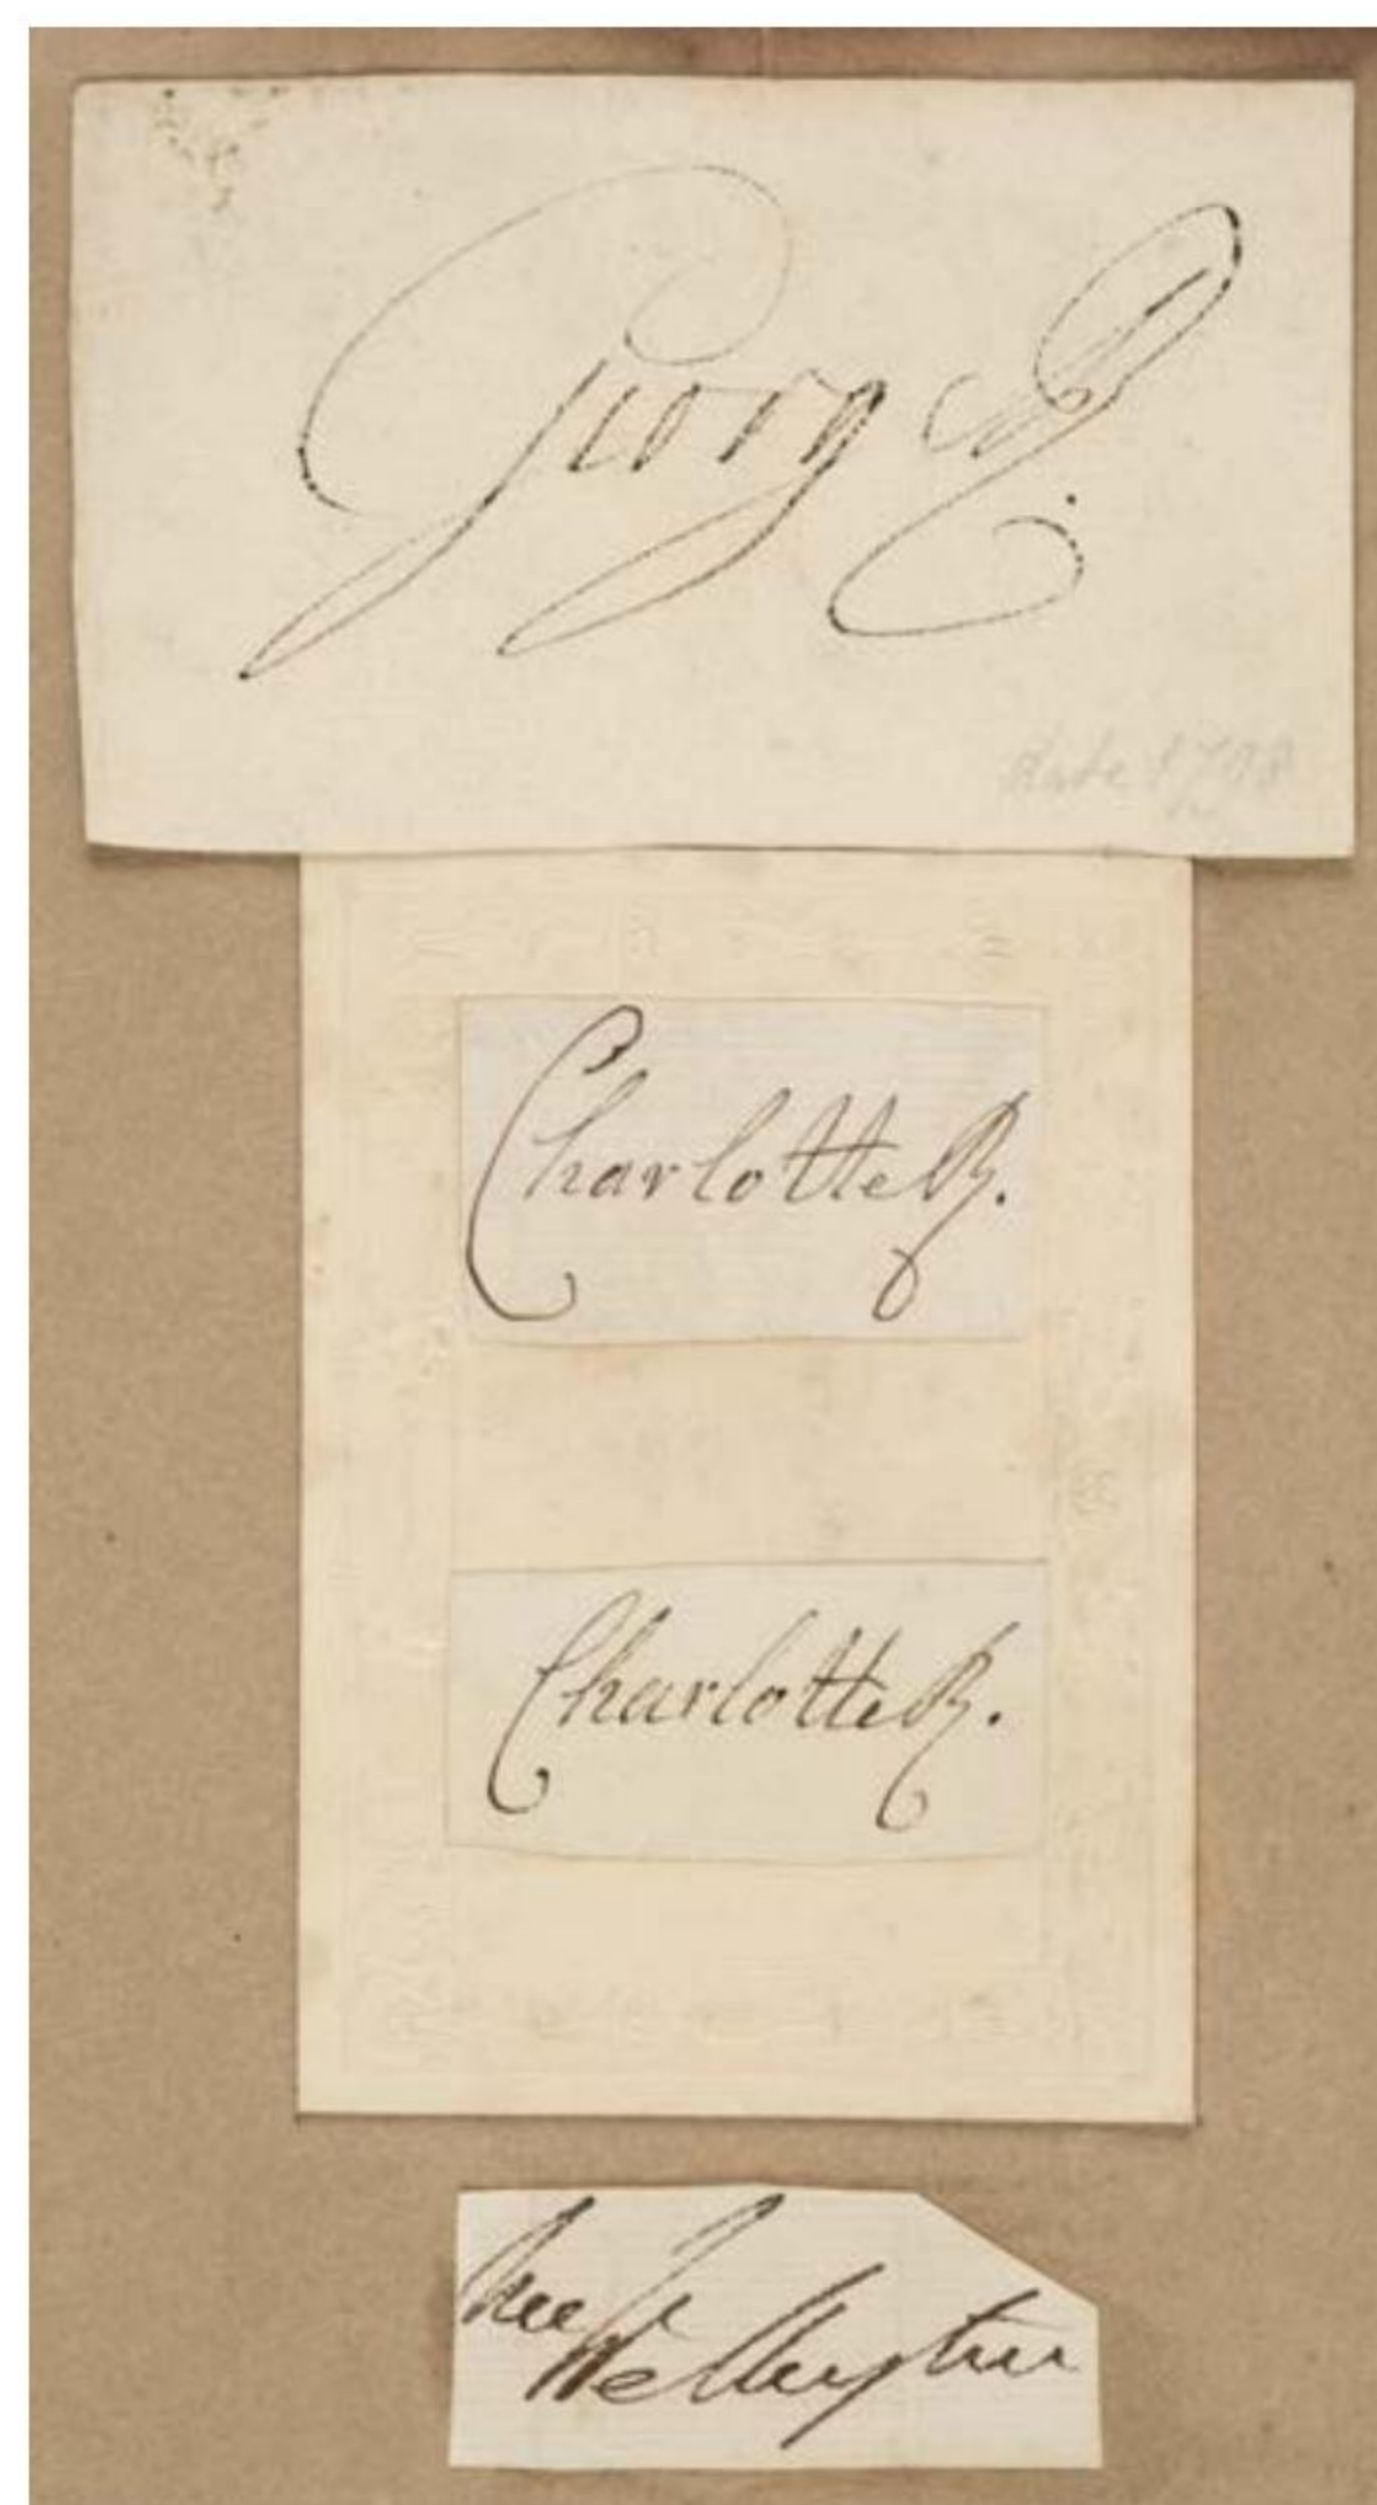 George R.
date 1798
Charlotte R.
Charlotte R.
Wellington